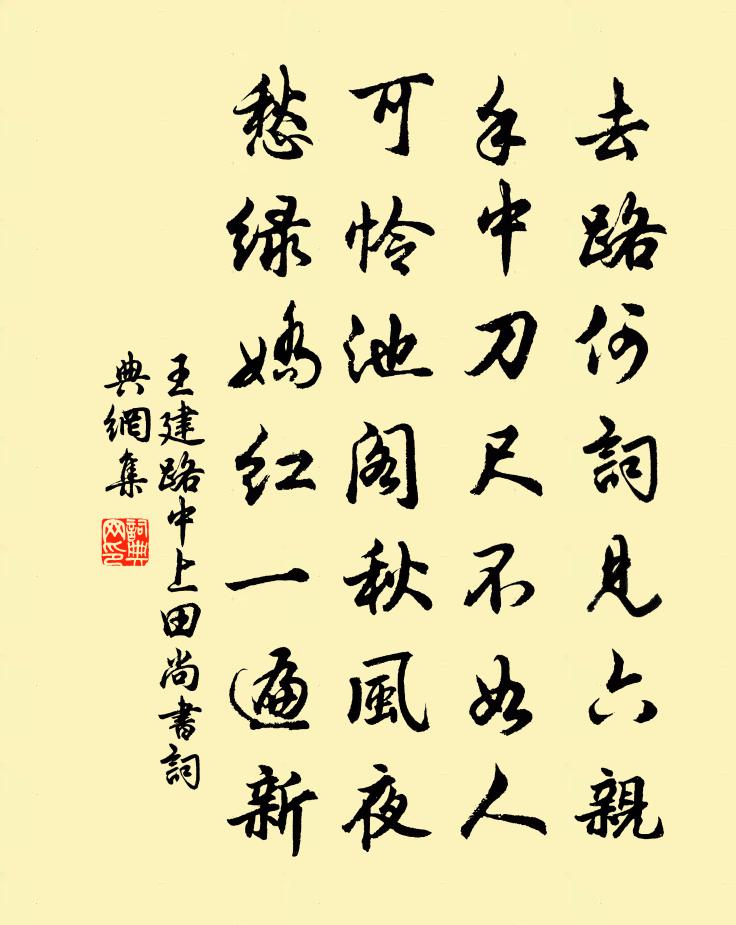 去路何詞見六親
手中刀尺不如人
可怜池阁秋風夜
愁绿嬌红一遍新
王建路中上田尚書詞
典網集
詞典
网印